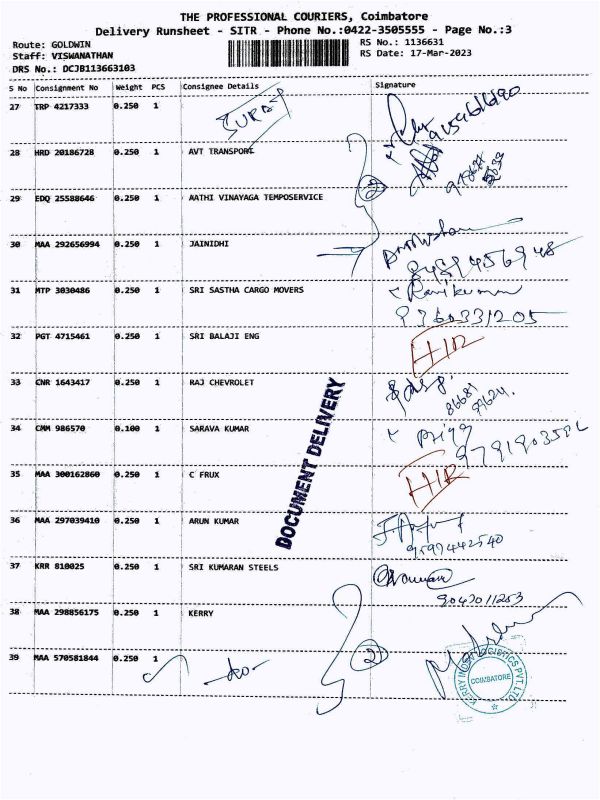 THE PROFESSIONAL COURIERS, Coimbatore
Delivery Runsheet - SITR - Phone No.:0422-3505555 - Page No.:3
Route: GOLDWIN
RS No.: 1136631
Staff: VISWANATHAN
RS Date: 17-Mar-2023
DRS No.: DCJB113663103
S No Consignment No Weight PCS Consignee Details Signature
27 TRP 4217333 0.250 1
28 HRD 20186728 0.250 1 AVT TRANSPORT
29 EDQ 25588646 0.250 1 AATHI VINAYAGA TEMPOSERVICE
2
30 MAA 292656994 0.250 1 JAINIDHI
31 MTP 3030486 0.250 1 SRI SASTHA CARGO MOVERS Ravikumar
9360331205
32 PGT 4715461 0.250 1 SRI BALAJI ENG
33 CNR 1643417 0.250 1 RAJ CHEVROLET
34 CMM 986570 0.100 1 SARAVA KUMAR Priya
35 MAA 300162860 0.250 1 C FRUX
DOCUMENT DELIVERY
36 MAA 297039410 0.250 1 ARUN KUMAR
9597442540
37 KRR 810025 0.250 1 SRI KUMARAN STEELS
9047011253
38 MAA 298856175 0.250 1 KERRY
39 MAA 570581844 0.250 1 -do- 2
KERRY INDEV LOGISTICS PVT. LTD
COIMBATORE